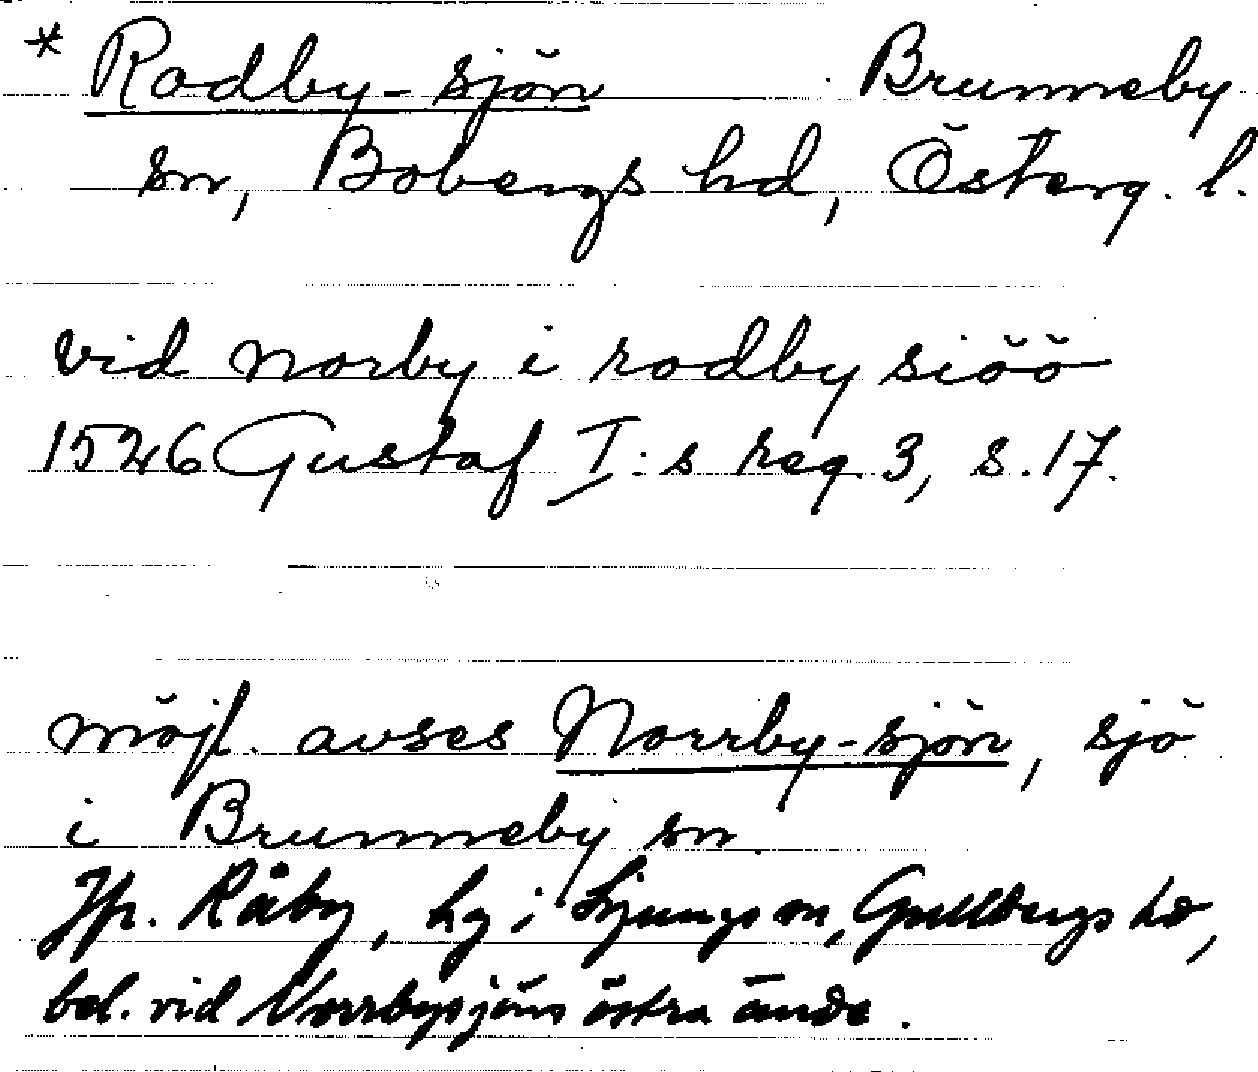 * Rodby-sjön Brunneby
sn, Bobergs hd, Österg. l.
vid norby i rodby siöö
1526 Gustaf I:s reg. 3, s. 17.
möjl. avses Norrby-sjön, sjö
i Brunneby sn.
Jfr. Råby, by i Ljungs sn, Gullbergs hd,
bel. vid Norrbysjöns östra ände.